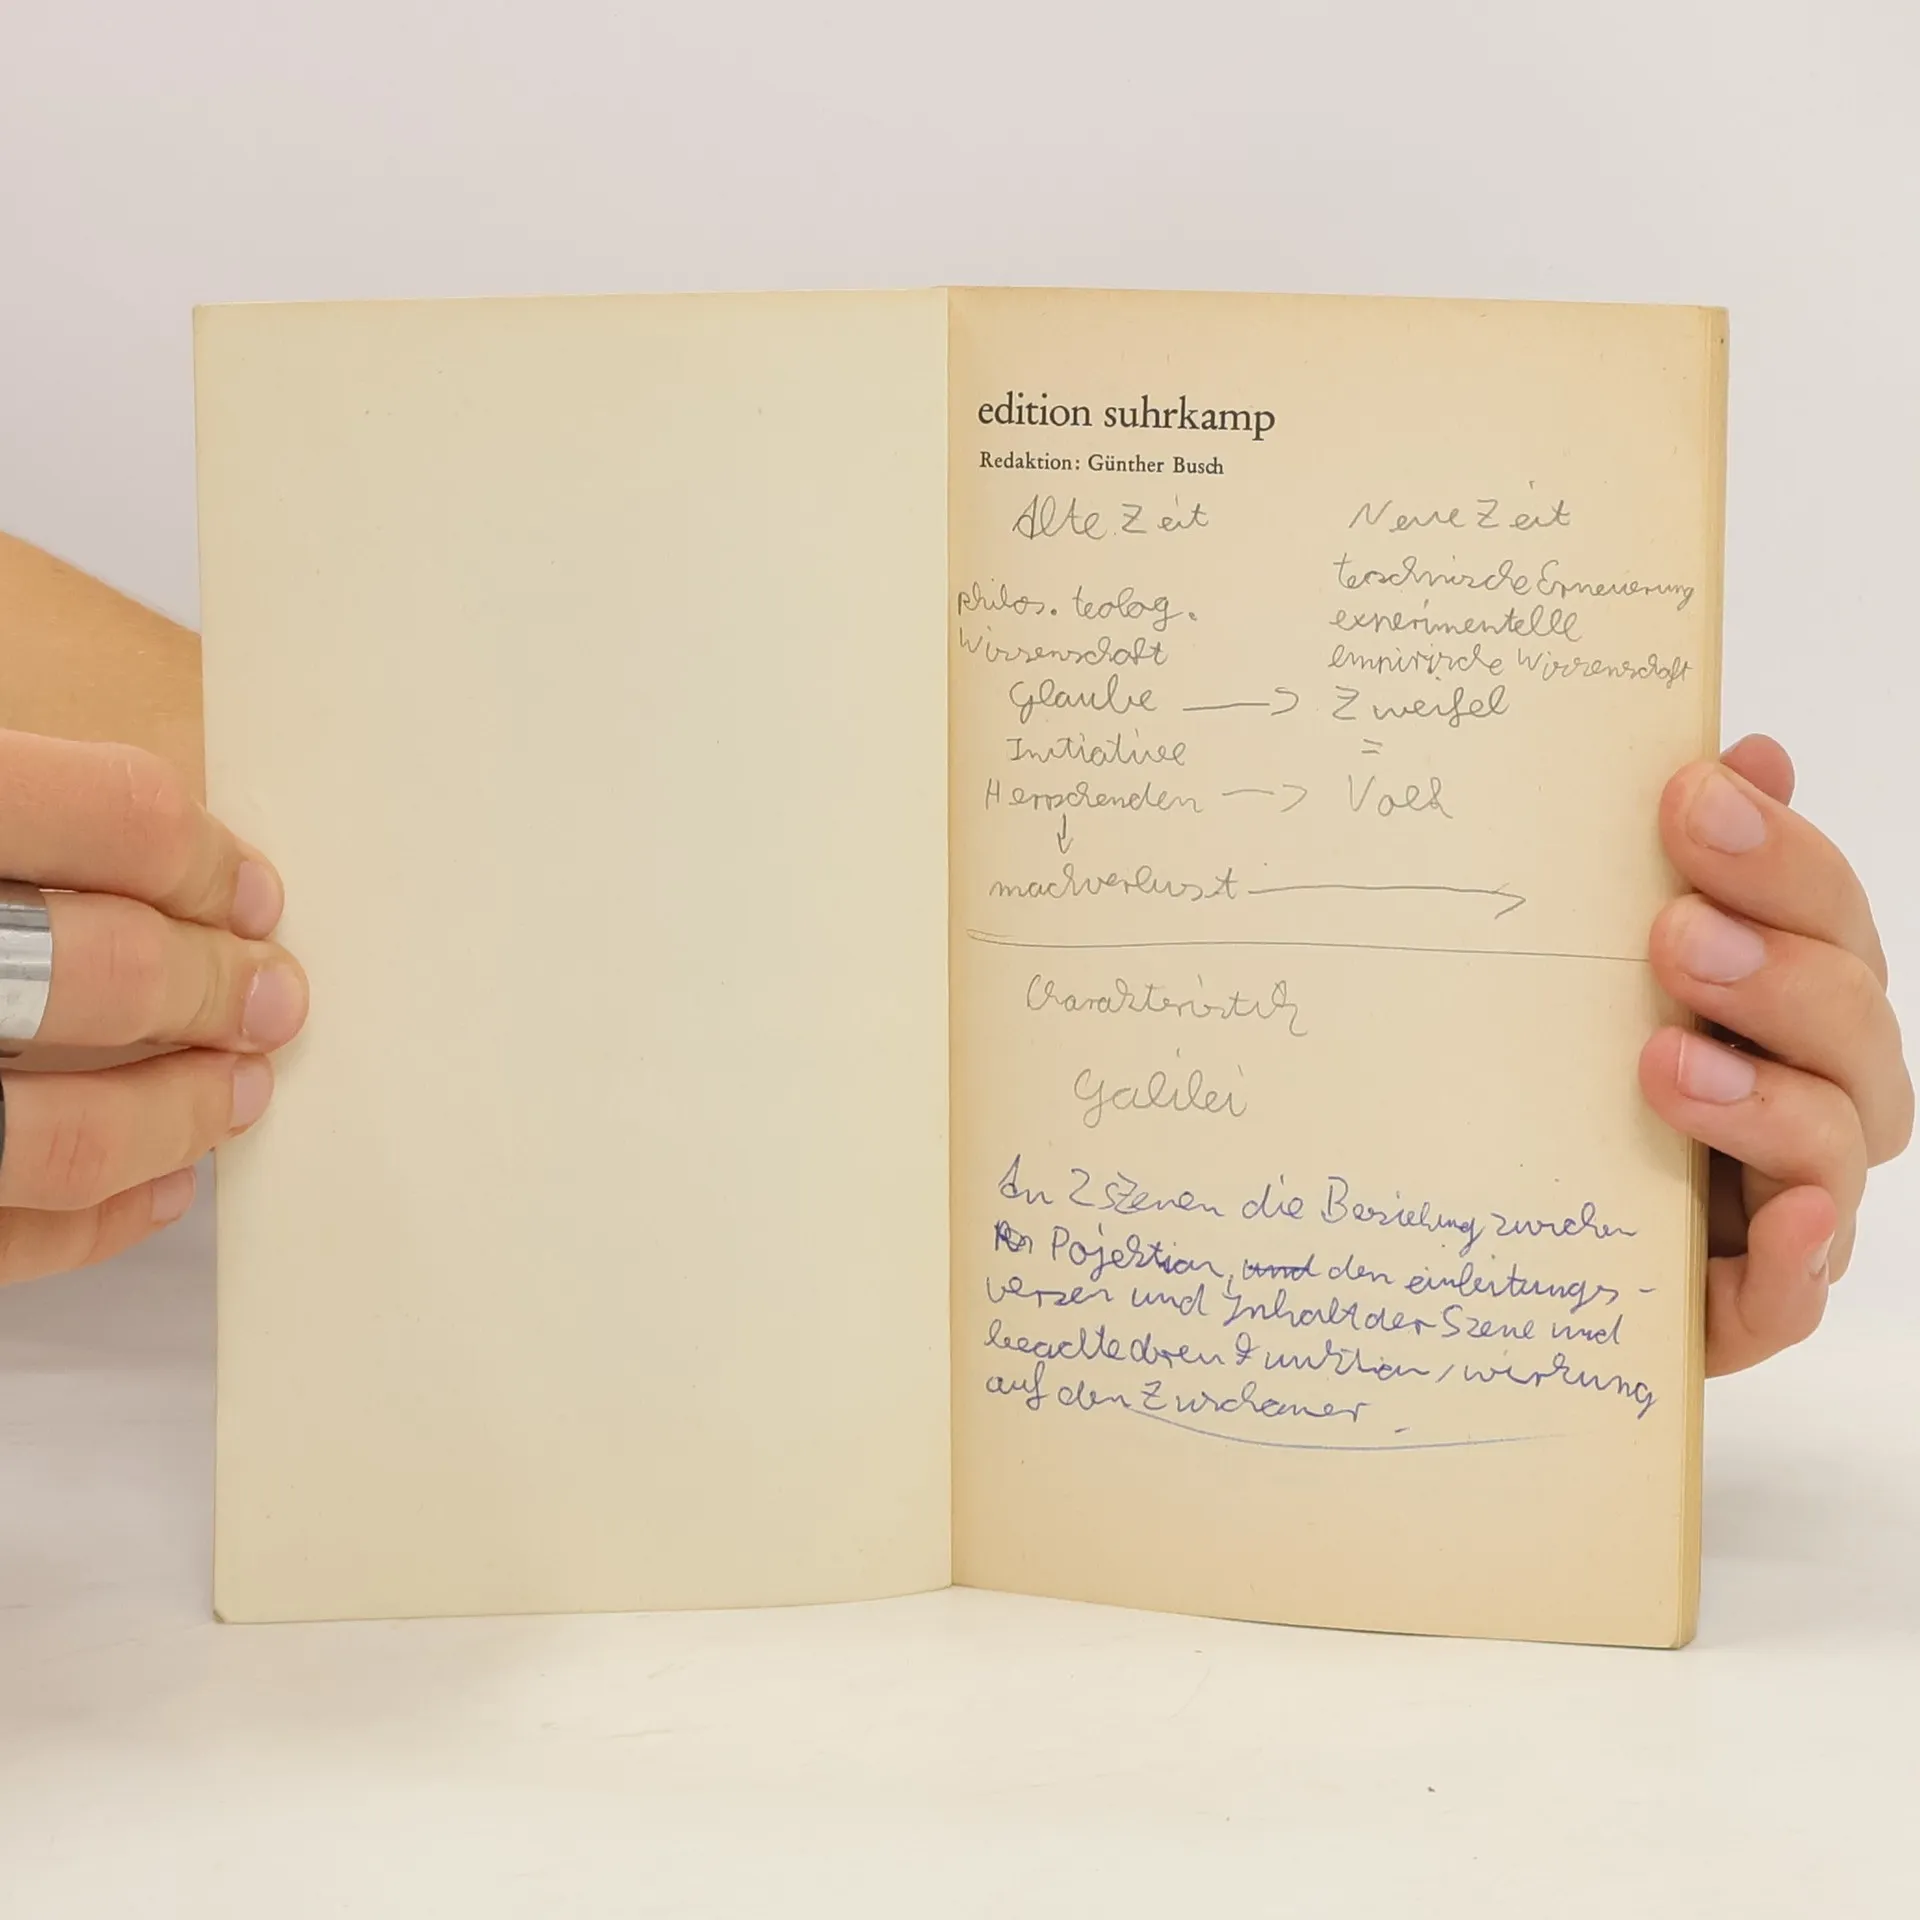 edition suhrkamp
Redaktion: Günther Busch
Alte Zeit
Neue Zeit
philos. teolog.
Wissenschaft
teschnische Erneuerung
experimentelle
empirische Wissenschaft
Glaube → Zweifel
Initiative =
Herrschenden → Volk
↓
machverlust →
Charakteristik
Galilei
An 2 Szenen die Beziehung zwischen
Pojektion, und den einleitungs-
versen und Inhalt der Szene und
beachte deren Funktion / wirkung
auf den Zuschauer.